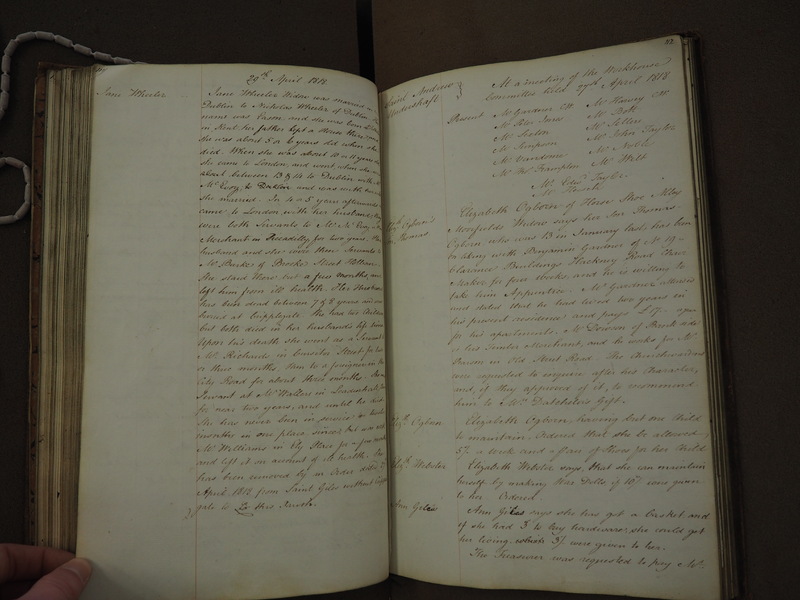 29th April 1818
Jane Wheeler
Jane Wheeler Widow was married in
Dublin to Nicholas Wheeler of Dublin
name was Parson and she was born
in Kent her father kept a there
she was about 5 or 6 years old when
died. When she was about 10 or 11 years
she came to London, and went when she
about between 13 & 14 to Dublin with
Mr Evoy, to Dublin and was with
she married. In 4 or 5 years afterwards
came to London with her husband,
were both Servants to Mr Mc Evoy
Merchant in Piccadilly for two years.
husband and she were then Servants to
Mr Burke of Brook Street Holborn
She staid there but a few months, and
left him from ill health. Her Husband
has been dead between 7 & 8 years and
buried at Cripplegate. She had two Children
but both died in her husbands life time
Upon his death she went as a Servant to
Mr Richards in Cursitor Street for two
or three months. Then to a foreigner in the
City Road for about three months.
Servant at Mr Wallers in
for near two years, and until he
She has never been in service twelve
months in one place since, but was at
Mr Williams in Ely Place for a few months
and left it on account of ill health. She
has been removed by an Order dated
April 1818 from Saint Giles without Cripple
gate to this Parish.
112
Saint Andrew
Undershaft
At a meeting of the Workhouse
Committee held 27th April 1818
Present Mr Gardner CW Mr Harvey CW
Mr Peter Jones Mr
Mr Sexton Mr Sellers
Mr Simpson Mr John Taylor
Mr Vandome Mr Noble
Mr Thos Frampton Mr Wilt
Mr Edwd Taylor
Mr
Elizth Ogborn
Thomas
Elizabeth Ogborn of Horse Shoe Alley
Moorfields Widow says her Son Thomas
Ogborn who was 13 in January last, has been
on liking with Benjamin Gardner of No 19
Clarence Buildings Hackney Road
Maker for four weeks, and he is willing to
take him Apprentice. Mr Gardner attended
and stated that he had lived two years in
his present residence and pays £17
for his apartments. Mr Dowson of Bankside
is his Timber Merchant, and he works for Mr
Parson in Old Street Road. The Churchwardens
were requested to enquire after his Character,
and, if they approved of it, to recommend
him to Mrs Datchelers Gift.
Elizth Ogborn
Elizabeth Ogborn having but one Child
to maintain. Ordered that she be allowed
5/. a week and a pair of Shoes for her Child
Elizth Webster
Elizabeth Webster says that she can maintain
herself by making Wax Dolls if 10/. were given
to her Ordered.
Ann Giles
Ann Giles says she has got a basket and
if she had 3/. to buy hardware, she could get
her living. 3/. were given to her.
The Treasurer was requested to pay Mr